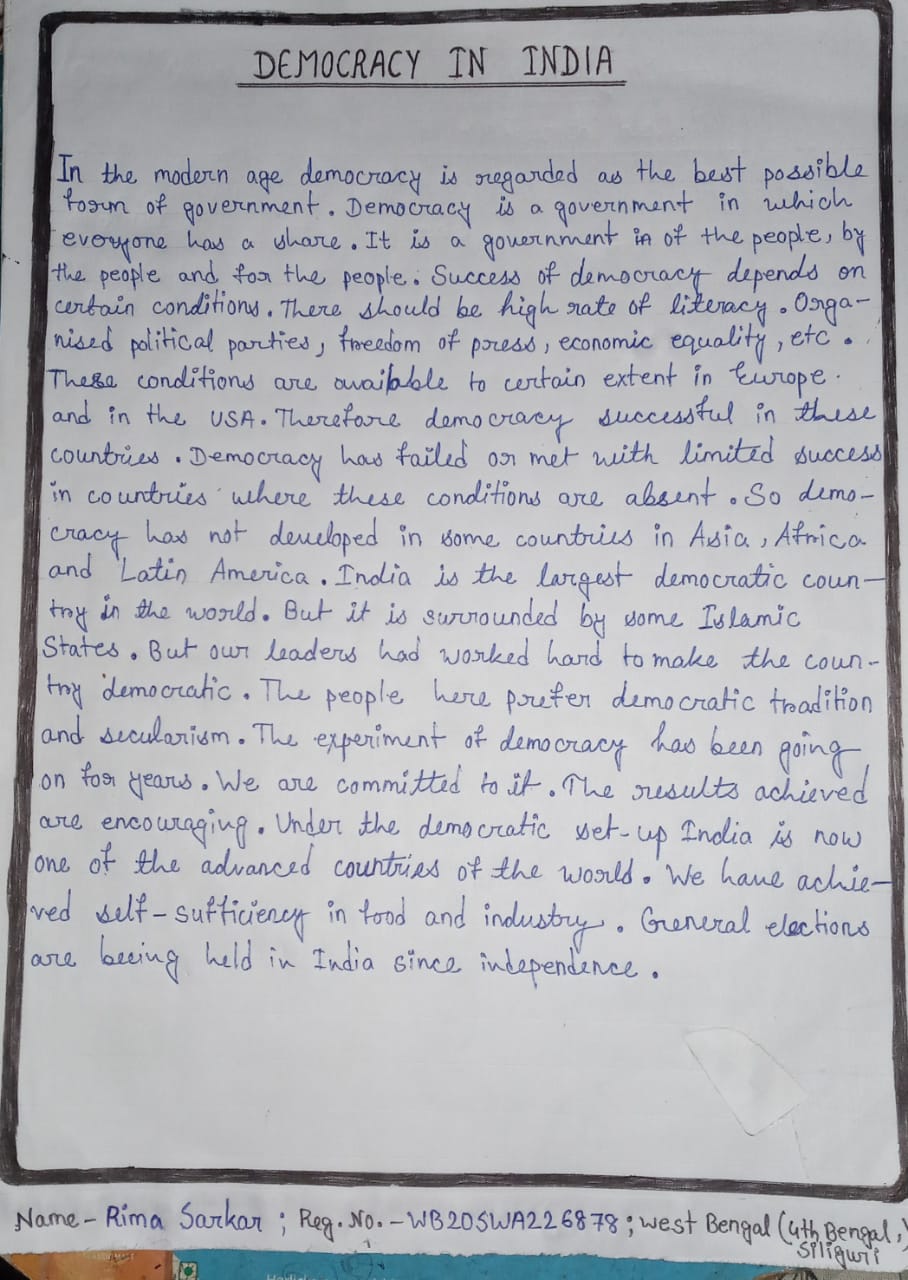 DEMOCRACY IN INDIA
In the modern age democracy is regarded as the best possible
form of government. Democracy is a government in which
everyone has a share. It is a government in of the people, by
the people and for the people. Success of democracy depends on
certain conditions. There should be high rate of literacy. Orga-
nised political parties, freedom of press, economic equality, etc.
These conditions are available to certain extent in Europe.
and in the USA. Therefore democracy successful in these
countries. Democracy has failed or met with limited success
in countries where these conditions are absent. So demo-
cracy has not developed in some countries in Asia, Africa
and Latin America. India is the largest democratic coun-
try in the world. But it is surrounded by some Islamic
States. But our leaders had worked hard to make the coun-
try democratic. The people here prefer democratic tradition
and secularism. The experiment of democracy has been going
on for years. We are committed to it. The results achieved
are encouraging. Under the democratic set-up India is now
one of the advanced countries of the world. We have achie-
ved self-sufficiency in food and industry. General elections
are beeing held in India since independence.
Name- Rima Sarkar ; Reg. No. - WB20SWA226878 ; West Bengal (4th Bengal,)
Siliguri